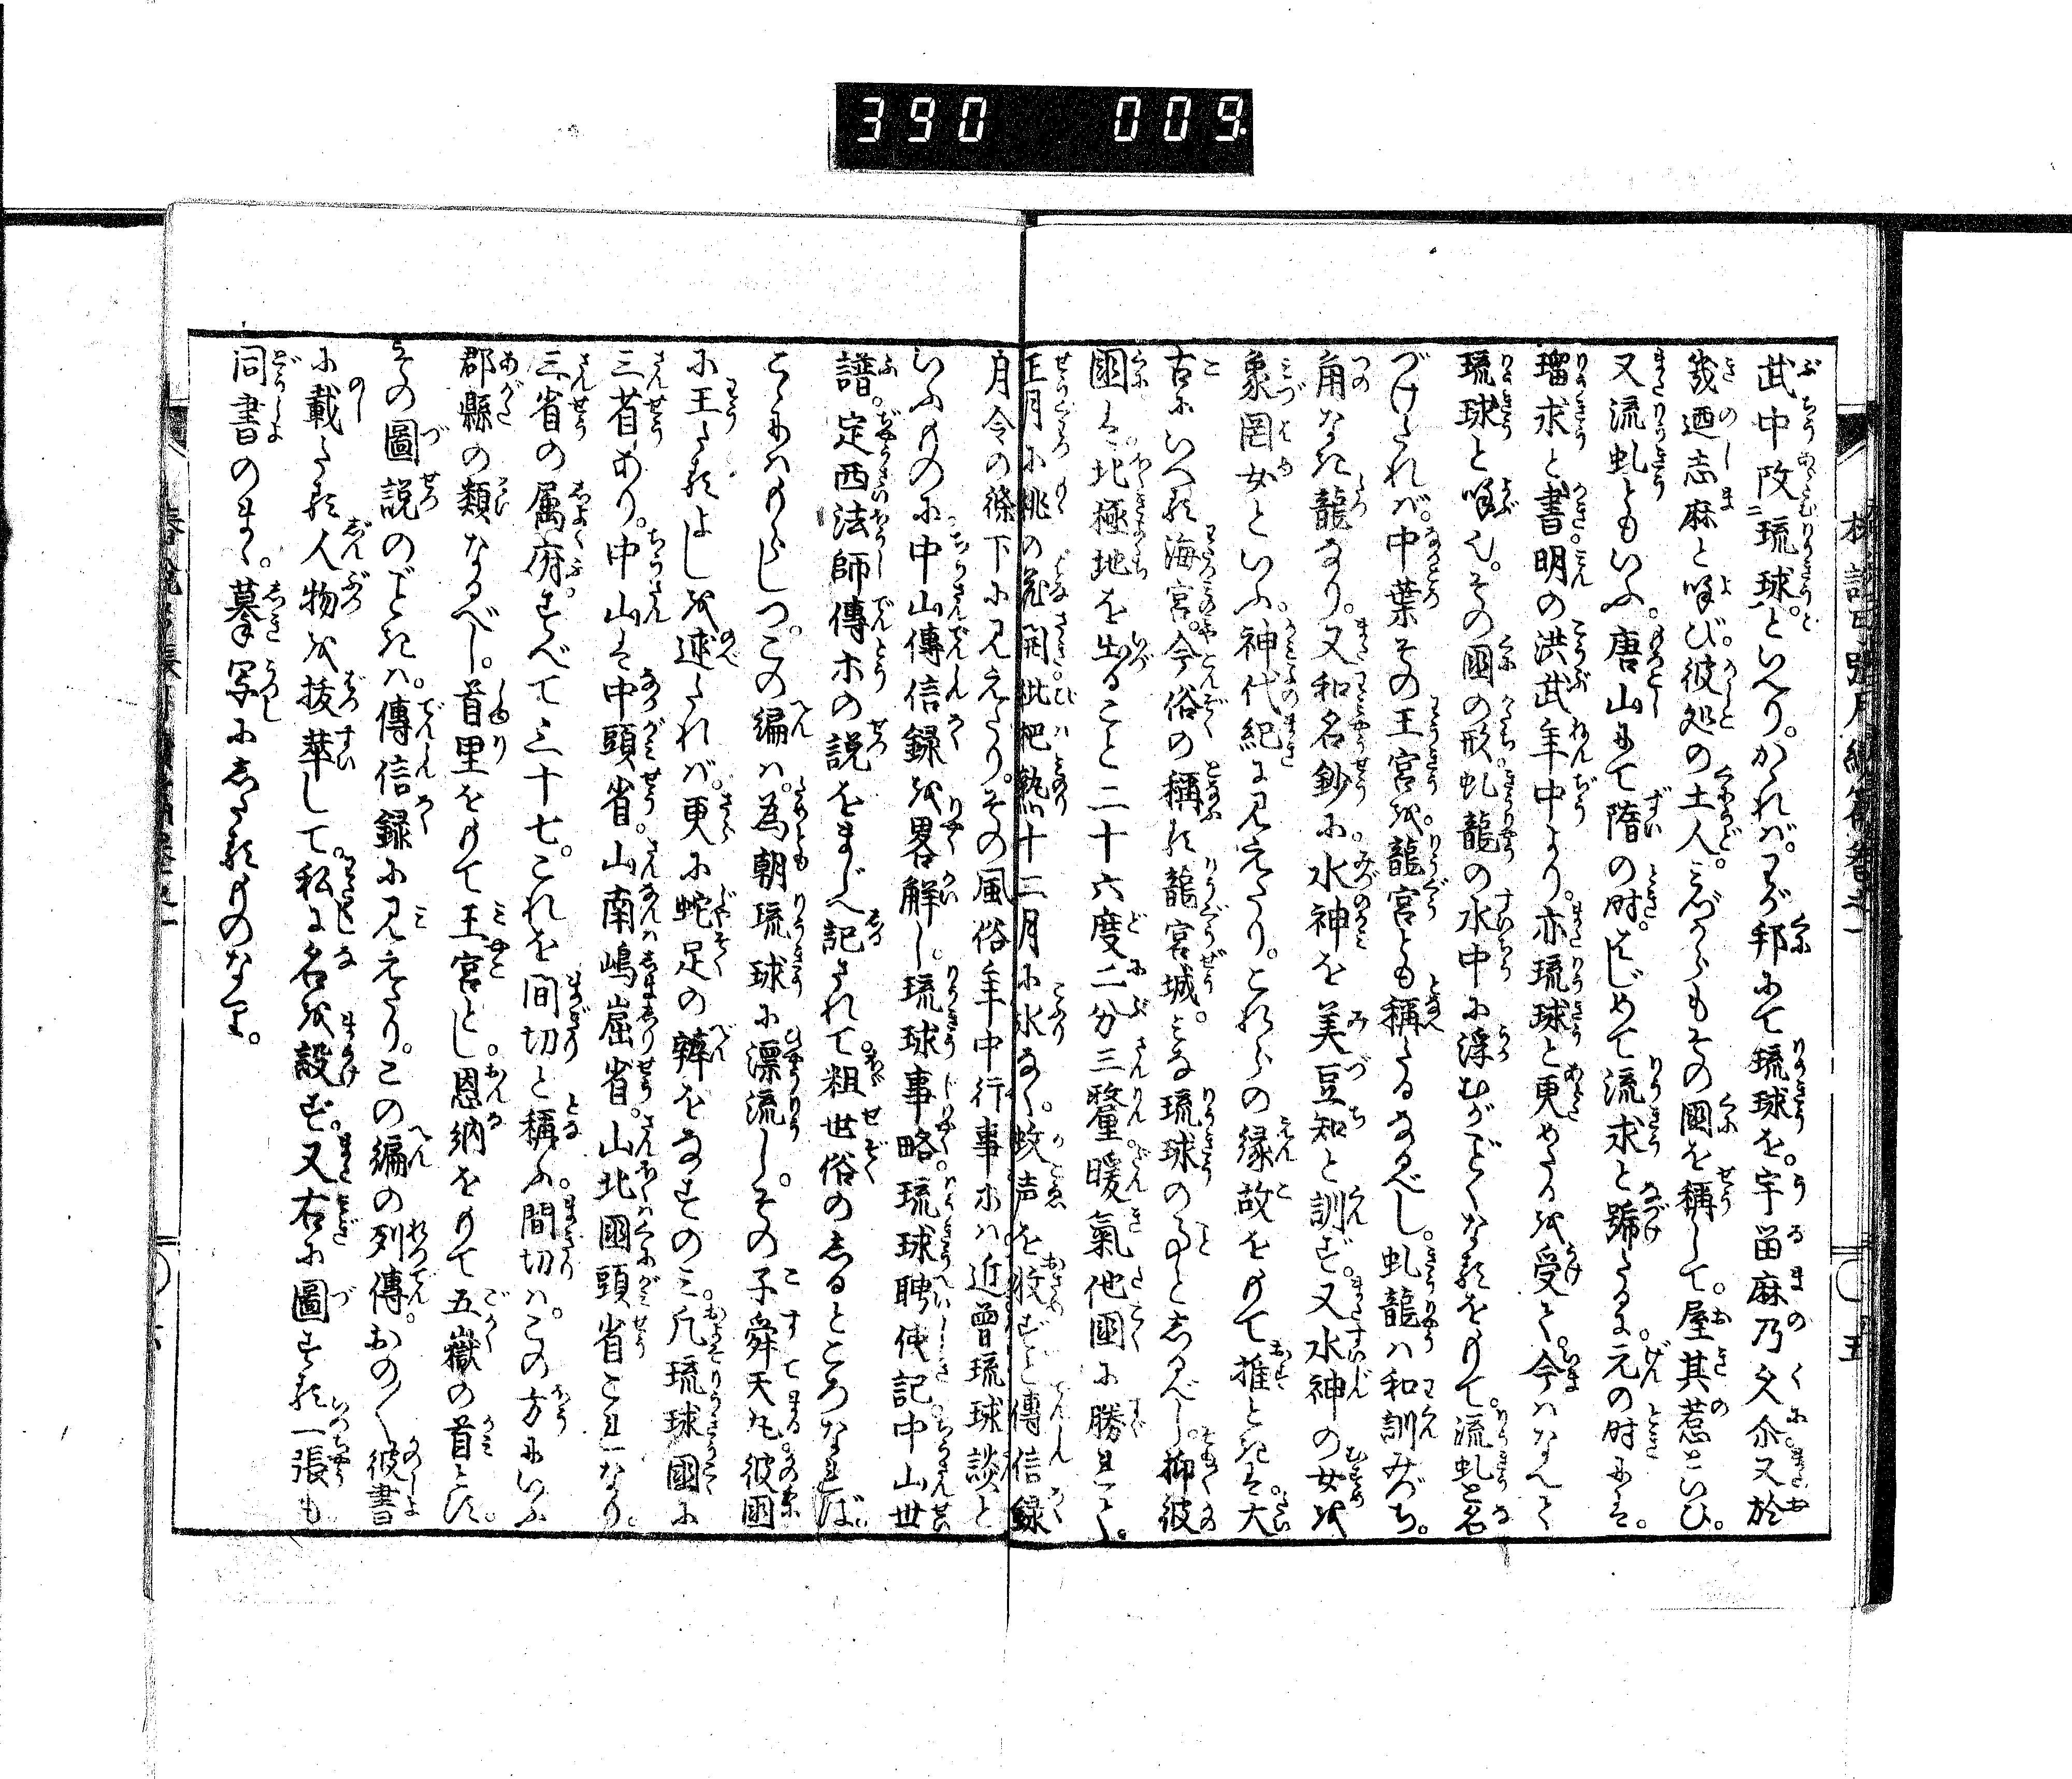 390 009
武中改琉球といへり。かゝればわが邦にて琉球を。宇留麻乃久尓又於
幾迺志麻と呼び。彼処の土人。みづからもその國を稱して。屋其惹といひ。
又流虬ともいふ。唐山にて隋の時。はじめて流求と號たるに。元の時には。
瑠求と書。明の洪武年中より。亦琉球と更めたるを受と。今はなんと
琉球と呼ん。その國の形。虬龍の水中に浮むがごとくなるをもて。流虬と名
づけたれば。中葉その王宮を龍宮とも稱たるなるべし。虬龍は和訓みづち。
角なき龍なり。又和名鈔に水神を美豆知と訓ず。又水神の女を
象罔女といふ。神代紀に見えたり。これらの縁故をもて推ときは。大
古にいへる海宮。今俗の稱る龍宮城。みな琉球のことゝしるべし。抑彼
國は。北極地を出ること二十六度二分三釐。暖氣他國に勝れて。
正月に桃の花開。枇杷熟。十二月に氷なく。蚊声を收ずと傳信録
月令の條下に見えたり。その風俗年中行事等は近曽琉球談と
いふものに。中山傳信録を畧解し。琉球事略。琉球聘使記。中山世
譜。定西法師傳等の説をまじへ記されて。粗世俗のしるところなれば
こゝにはもらしつ。この編は。為朝琉球に漂流し。その子舜天丸彼國
に王たるよしを述たれば。更に蛇足の辯をなすのミ。凡琉球國に
三省あり。中山は中頭省。山南嶋尻省。山北國頭省これなり。
三省の属府。すべて三十七。これを間切と稱ふ。間切は。この方にいふ
郡縣の類なるべし。首里をもて王宮とし。恩納をもて五嶽の首とす。
その圖説のごときは。傳信録に見えたり。この編の列傳。おの〱彼書
に載たる人物を抜萃して。私に名を設ず。又右に圖する一張も
同書のまゝ。摹写にしたるものなり。